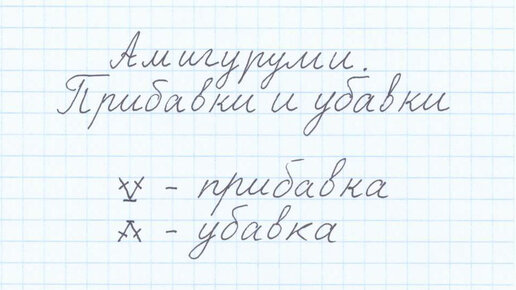 Амигуруми.
Прибавки и убавки
- прибавка
- убавка